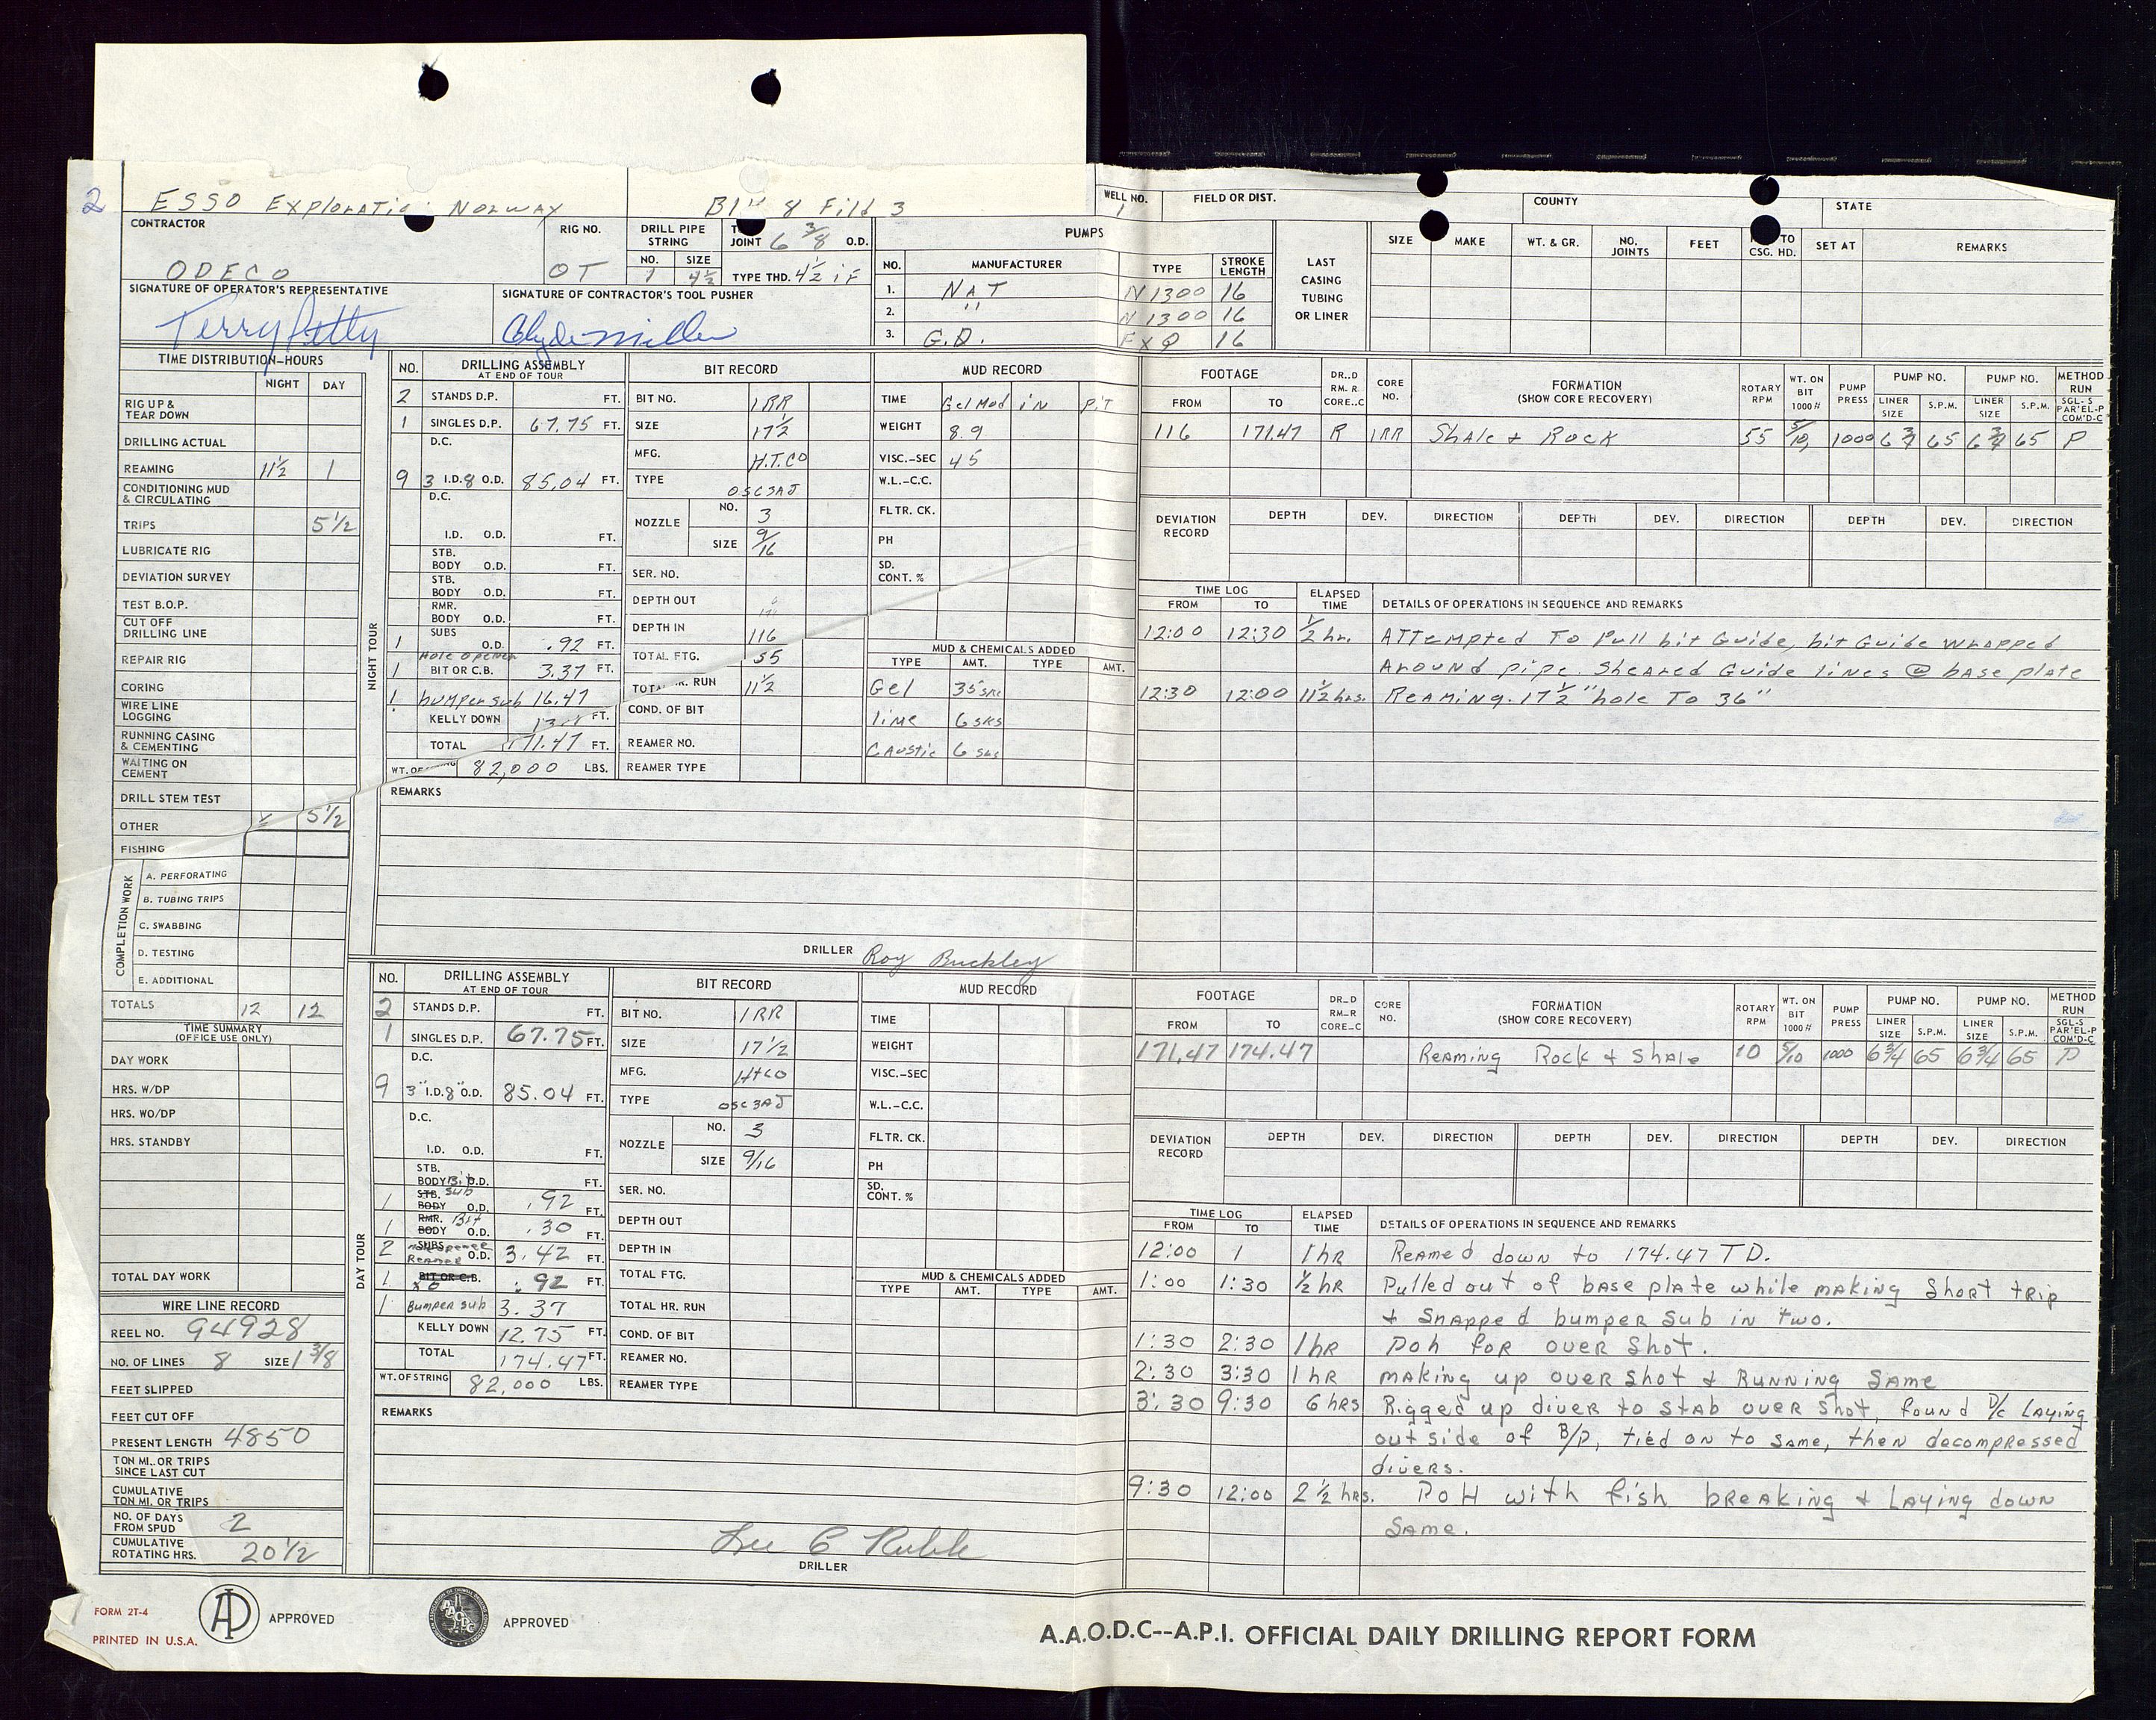 2
ESSO Exploratio Norway
Blk 8 Fild 3
WELL NO. 1
FIELD OR DIST.
COUNTY
STATE
CONTRACTOR
ODECO
RIG NO.
OT
DRILL PIPE STRING
NO. SIZE
1 4½
JOINT 6 3/8 O.D.
TYPE THD. 4½ iF
PUMPS
NO. MANUFACTURER TYPE STROKE LENGTH
1. NAT N 1300 16
2. " N 1300 16
3. G.D. FXQ 16
LAST CASING TUBING OR LINER
SIZE MAKE WT. & GR. NO. JOINTS FEET TO CSG. HD. SET AT REMARKS
SIGNATURE OF OPERATOR'S REPRESENTATIVE
Terry Petty
SIGNATURE OF CONTRACTOR'S TOOL PUSHER
Clyde Miller
TIME DISTRIBUTION-HOURS
NIGHT DAY
RIG UP & TEAR DOWN
DRILLING ACTUAL
REAMING 11½ 1
CONDITIONING MUD & CIRCULATING
TRIPS 5 1/2
LUBRICATE RIG
DEVIATION SURVEY
TEST B.O.P.
CUT OFF DRILLING LINE
REPAIR RIG
CORING
WIRE LINE LOGGING
RUNNING CASING & CEMENTING
WAITING ON CEMENT
DRILL STEM TEST
OTHER 5 1/2
FISHING
COMPLETION WORK
A. PERFORATING
B. TUBING TRIPS
C. SWABBING
D. TESTING
E. ADDITIONAL
TOTALS 12 12
TIME SUMMARY
(OFFICE USE ONLY)
DAY WORK
HRS. W/DP
HRS. WO/DP
HRS. STANDBY
TOTAL DAY WORK
WIRE LINE RECORD
REEL NO. 94928
NO. OF LINES 8 SIZE 1 3/8
FEET SLIPPED
FEET CUT OFF
PRESENT LENGTH 4850
TON MI. OR TRIPS SINCE LAST CUT
CUMULATIVE TON MI. OR TRIPS
NO. OF DAYS FROM SPUD 2
CUMULATIVE ROTATING HRS. 20 1/2
NIGHT TOUR
NO. DRILLING ASSEMBLY
AT END OF TOUR
2 STANDS D.P. FT.
1 SINGLES D.P. 67.75 FT.
D.C.
9 3 I.D. 8 O.D. 85.04 FT.
D.C.
I.D. O.D. FT.
STB. BODY O.D. FT.
STB. BODY O.D. FT.
RMR. BODY O.D. FT.
1 SUBS O.D. .92 FT.
Hole opener
1 BIT OR C.B. 3.37 FT.
1 bumper sub 16.47
KELLY DOWN FT.
TOTAL 171.47 FT.
WT. OF 82,000 LBS.
BIT RECORD
BIT NO. 1RR
SIZE 17½
MFG. H.T.CO
TYPE OSC3AJ
NOZZLE NO. 3
SIZE 9/16
SER. NO.
DEPTH OUT
DEPTH IN 116
TOTAL FTG. 55
RUN 11½
COND. OF BIT
REAMER NO.
REAMER TYPE
MUD RECORD
TIME Gel Mud in Pit
WEIGHT 8.9
VISC.-SEC 45
W.L.-C.C.
FLTR. CK.
PH
SD. CONT. %
MUD & CHEMICALS ADDED
TYPE AMT. TYPE AMT.
Gel 35 sks
lime 6 sks
Caustic 6 sks
REMARKS
DRILLER Roy Buckley
FOOTAGE
FROM TO
DR..D RM. R CORE..C
CORE NO.
FORMATION
(SHOW CORE RECOVERY)
ROTARY RPM
WT. ON BIT 1000 #
PUMP PRESS
PUMP NO. LINER SIZE S.P.M.
PUMP NO. LINER SIZE S.P.M.
METHOD RUN
SGL-S PAR'EL-P COM'D-C
116 171.47 R 1RR Shale & Rock 55 5/10 1000 6 3/4 65 6 3/4 65 P
DEVIATION RECORD
DEPTH DEV. DIRECTION DEPTH DEV. DIRECTION DEPTH DEV. DIRECTION
TIME LOG
FROM TO ELAPSED TIME
DETAILS OF OPERATIONS IN SEQUENCE AND REMARKS
12:00 12:30 1/2 hr. Attempted To Pull bit Guide, bit Guide wrapped
around pipe. Sheared Guide lines @ base plate
12:30 12:00 11½ hrs. Reaming. 17½" hole To 36"
DAY TOUR
NO. DRILLING ASSEMBLY
AT END OF TOUR
2 STANDS D.P. FT.
1 SINGLES D.P. 67.75 FT.
D.C.
9 3" I.D. 8" O.D. 85.04 FT.
D.C.
I.D. O.D. FT.
STB. BODY O.D. FT.
1 Bit sub O.D. .92 FT.
1 Bit O.D. .30 FT.
2 Hole opener Reamer O.D. 3.42 FT.
1 XO .92 FT.
1 Bumper sub 3.37
KELLY DOWN 12.75 FT.
TOTAL 174.47 FT.
WT. OF STRING 82,000 LBS.
BIT RECORD
BIT NO. 1RR
SIZE 17 1/2
MFG. HTCO
TYPE OSC3AJ
NOZZLE NO. 3
SIZE 9/16
SER. NO.
DEPTH OUT
DEPTH IN
TOTAL FTG.
TOTAL HR. RUN
COND. OF BIT
REAMER NO.
REAMER TYPE
MUD RECORD
TIME
WEIGHT
VISC.-SEC
W.L.-C.C.
FLTR. CK.
PH
SD. CONT. %
MUD & CHEMICALS ADDED
TYPE AMT. TYPE AMT.
REMARKS
DRILLER
FOOTAGE
FROM TO
DR_D RM_R CORE_C
CORE NO.
FORMATION
(SHOW CORE RECOVERY)
ROTARY RPM
WT. ON BIT 1000 #
PUMP PRESS
PUMP NO. LINER SIZE S.P.M.
PUMP NO. LINER SIZE S.P.M.
METHOD RUN
SGL-S PAR'EL-P COM'D-C
171.47 174.47 Reaming Rock & Shale 10 5/10 1000 6 3/4 65 6 3/4 65 P
DEVIATION RECORD
DEPTH DEV. DIRECTION DEPTH DEV. DIRECTION DEPTH DEV. DIRECTION
TIME LOG
FROM TO ELAPSED TIME
DETAILS OF OPERATIONS IN SEQUENCE AND REMARKS
12:00 1 1 hr Reamed down to 174.47 TD.
1:00 1:30 1/2 hr Pulled out of base plate while making Short trip
& Snapped bumper sub in two.
1:30 2:30 1 hr Poh for over shot.
2:30 3:30 1 hr making up over shot & Running Same
3:30 9:30 6 hrs Rigged up diver to stab over shot, found D/C Laying
outside of B/P, tied on to same, then decompressed
divers.
9:30 12:00 2 1/2 hrs. POH with fish breaking & Laying down
Same.
FORM 2T-4
PRINTED IN U.S.A.
APPROVED
APPROVED
A.A.O.D.C--A.P.I. OFFICIAL DAILY DRILLING REPORT FORM